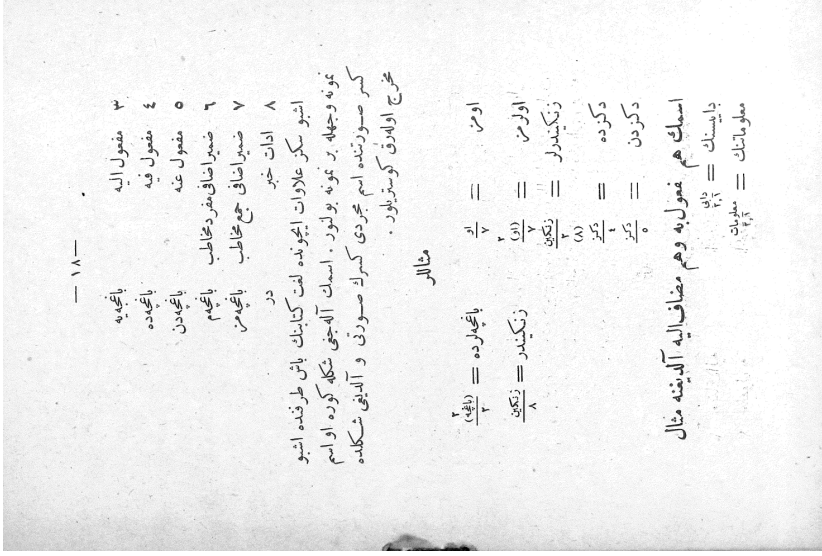 — ١٨ —
٣ مفعول اليه باغچه‌يه
٤ مفعول فيه باغچه‌ده
٥ مفعول عنه باغچه‌دن
٦ ضمير اضافى مفرد مخاطب باغچه‌م
٧ ضمير اضافى جمع مخاطب باغچه‌مز
٨ ادات خبر در
اشبو سكز علاوات ايچونده لغت كتابنك باش طرفنده اشبو
نمونه وجهله بر نمونه بولنور . اسمك آله‌جغى شكله كوره او اسم
كسر صورتنده اسم مجردى كسرك صورتى و آلديغى شكلده
مخرج اوله‌رق كوستريلور .
مثاللر
او / ٧ = اومز (باغچه) ٢ / ٣ = باغچه‌لرده
(او) ٢ / ٧ = اولرمز زنكين / ٨ = زنكيندر
زنكين ٢ / (٨) = زنكيندرلر
دكز / ٤ = دكزده
دكز / ٥ = دكزدن
اسمك هم مفعول به وهم مضاف اليه آلديغنه مثال
دايى / ٢،٦ = داييسنك
معلومات / ٢،٦ = معلوماتنك